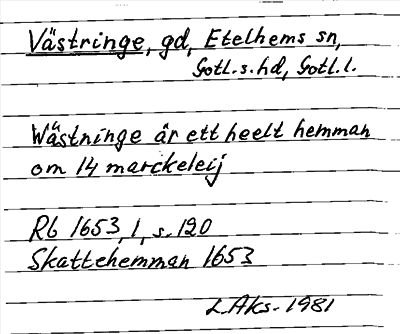 Västringe, gd, Etelhems sn,
Gotl.s.hd, Gotl.l.
Wästninge är ett heelt hemman
om 14 marckeleij
Rb 1653, 1, s. 120
Skattehemman 1653
L.Aks. 1981